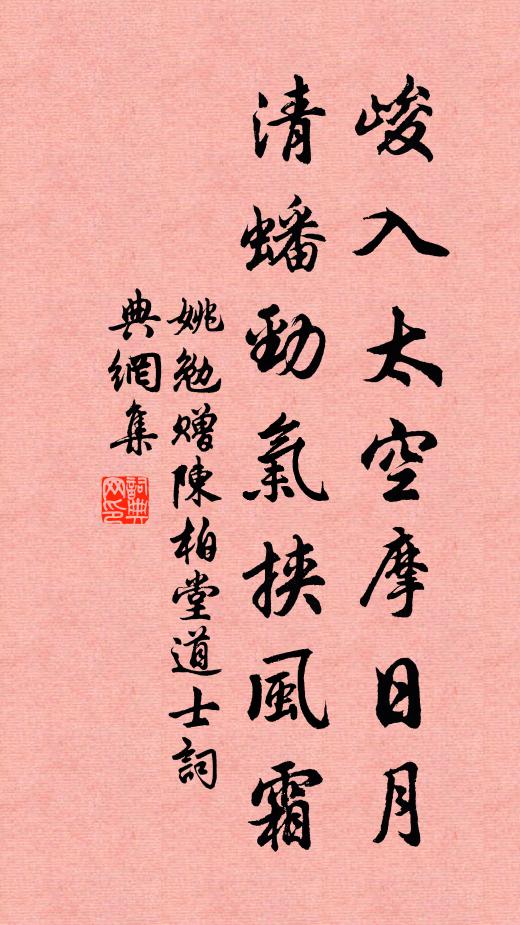 峻入太空摩日月
清蟠勁氣挾風霜
姚勉赠陳柏堂道士詞
典網集
詞典網印